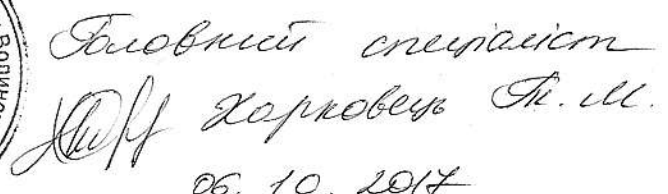 Головний спеціаліст
Харковець Т. М.
06. 10. 2017